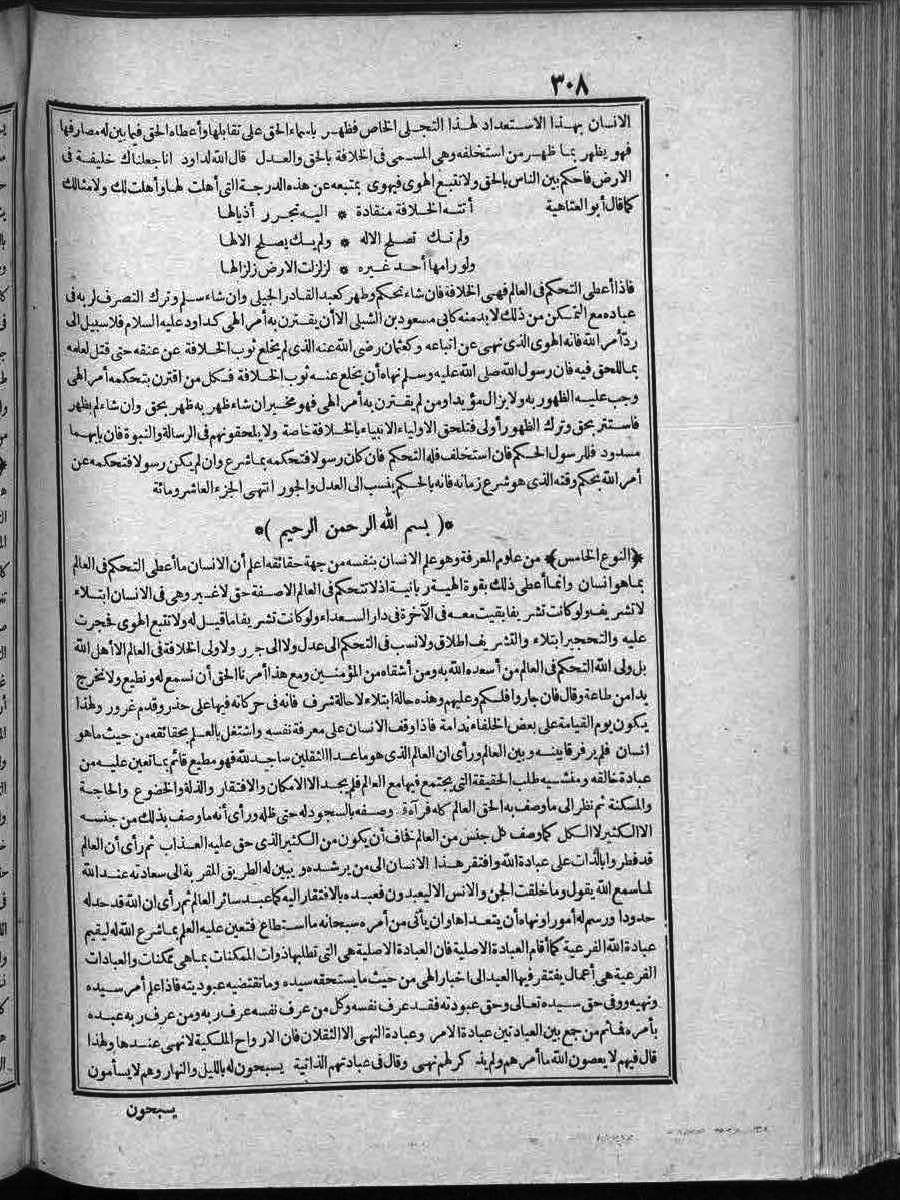 ٣٠٨
الانسان بهذا الاستعداد لهذا التجلى الخاص فظهر باسماء الحق على تقابلها وأعطاه الحق فيما بين له مصارفها
فهو يظهر بما ظهر من استخلفه وهى المسمى فى الخلافة بالحق والعدل قال الله لداود انا جعلناك خليفة فى
الارض فاحكم بين الناس بالحق ولا تتبع الهوى فيهوى بمتبعه عن هذه الدرجة التى أهلت لها وأهلت لك ولامثالك
كما قال أبو العتاهية أتته الخلافة منقادة * اليه تجرر أذيالها
ولم تك تصلح الاله * ولم يك يصلح الالها
ولو رامها أحد غيره * لزلزلت الارض زلزالها
فاذا أعطى التحكم فى العالم فهى الخلافة فان شاء تحكم وظهر كعبد القادر الجيلى وان شاء سلم وترك التصرف لربه فى
عباده مع التمكن من ذلك لابد منه كابى مسعود بن الشبلى الا أن يقترن به أمر الهى كداود عليه السلام فلا سبيل الى
ردّ أمر الله فانه الهوى الذى نهى عن اتباعه وكعثمان رضى الله عنه الذى لم يخلع ثوب الخلافة عن عنقه حتى قتل لعلمه
بما للحق فيه فان رسول الله صلى الله عليه وسلم نهاه أن يخلع عنه ثوب الخلافة فكل من اقترن بتحكمه أمر الهى
وجب عليه الظهور به ولا يزال مؤيدا ومن لم يقترن به أمر الهى فهو مخير ان شاء ظهر به ظهر بحق وان شاء لم يظهر
فاستتر بحق وترك الظهور أولى فتلحق الاولياء الانبياء بالخلافة خاصة ولا يلحقونهم فى الرسالة والنبوة فان بابهما
مسدود فللرسول الحكم فان استخلف فله التحكم فان كان رسولا فتحكمه بما شرع وان لم يكن رسولا فتحكمه عن
أمر الله بحكم وقته الذى هو شرع زمانه فانه بالحكم ينسب الى العدل والجور انتهى الجزء العاشر ومائة
*( بسم الله الرحمن الرحيم )*
﴿النوع الخامس﴾ من علوم المعرفة وهو علم الانسان بنفسه من جهة حقائقه اعلم أن الانسان ما أعطى التحكم فى العالم
بما هو انسان وانما أعطى ذلك بقوة الهية ربانية اذ لا تتحكم فى العالم الا صفة حق لا غير وهى فى الانسان ابتلاء
لا تشريف ولو كانت تشريفا بقيت معه فى الآخرة فى دار السعداء ولو كانت تشريفا ما قيل له ولا تتبع الهوى فحجرت
عليه والتحجير ابتلاء والتشريف اطلاق ولا نسب فى التحكم الى عدل ولا الى جور ولا ولى الخلافة فى العالم الا أهل الله
بل ولى الله التحكم فى العالم من أسعده الله به ومن أشقاه من المؤمنين ومع هذا أمرنا الحق أن نسمع له ونطيع ولا نخرج
يدا من طاعة وقال فان جاروا فلكم وعليهم وهذه حالة ابتلاء لا حالة شرف فانه فى حركاته فيها على حذر وقدم غرور ولهذا
يكون يوم القيامة على بعض الخلفاء ندامة فاذا وقف الانسان على معرفة نفسه واشتغل بالعلم بحقائقه من حيث ما هو
انسان فلم ير فرقا بينه وبين العالم ورأى ان العالم الذى هو ما عدا الثقلين ساجد لله فهو مطيع قائم بما تعين عليه من
عبادة خالقه ومنشئه طلب الحقيقة التى يجتمع فيها مع العالم فلم يجد الا الامكان والافتقار والذلة والخضوع والحاجة
والمسكنة ثم نظر الى ما وصف به الحق العالم كله فرآه وصفه بالسجود له حتى ظله ورأى أنه ما وصف بذلك من جنسه
الا الكثير لا الكل كما وصف كل جنس من العالم فخاف أن يكون من الكثير الذى حق عليه العذاب ثم رأى أن العالم
قد فطروا بالذات على عبادة الله وافتقر هذا الانسان الى من يرشده ويبين له الطريق المقربة الى سعادته عند الله
لما سمع الله يقول وما خلقت الجن والانس الا ليعبدون فعبده بالافتقار اليه كما عبد سائر العالم ثم رأى ان الله قد حد له
حدودا ورسم له أمورا ونهاه أن يتعداها وان يأتى من أمره سبحانه ما استطاع فتعين عليه العلم بما شرع الله له ليقيم
عبادة الله الفرعية كما أقام العبادة الاصلية فان العبادة الاصلية هى التى تطلبها ذوات الممكنات بما هى ممكنات والعبادات
الفرعية هى أعمال يفتقر فيها العبد الى اخبار الهى من حيث ما يستحقه سيده وما تقتضيه عبوديته فاذا علم أمر سيده
ونهيه ووفى حق سيده تعالى وحق عبودته فقد عرف نفسه وكل من عرف نفسه عرف ربه ومن عرف ربه عبده
بأمره فما ثم من جمع بين العبادتين عبادة الامر وعبادة النهى الا الثقلان فان الارواح الملكية لا نهى عندها ولهذا
قال فيهم لا يعصون الله ما أمرهم ولم يذكر لهم نهى وقال فى عبادتهم الذاتية يسبحون له بالليل والنهار وهم لا يسأمون
يسبحون